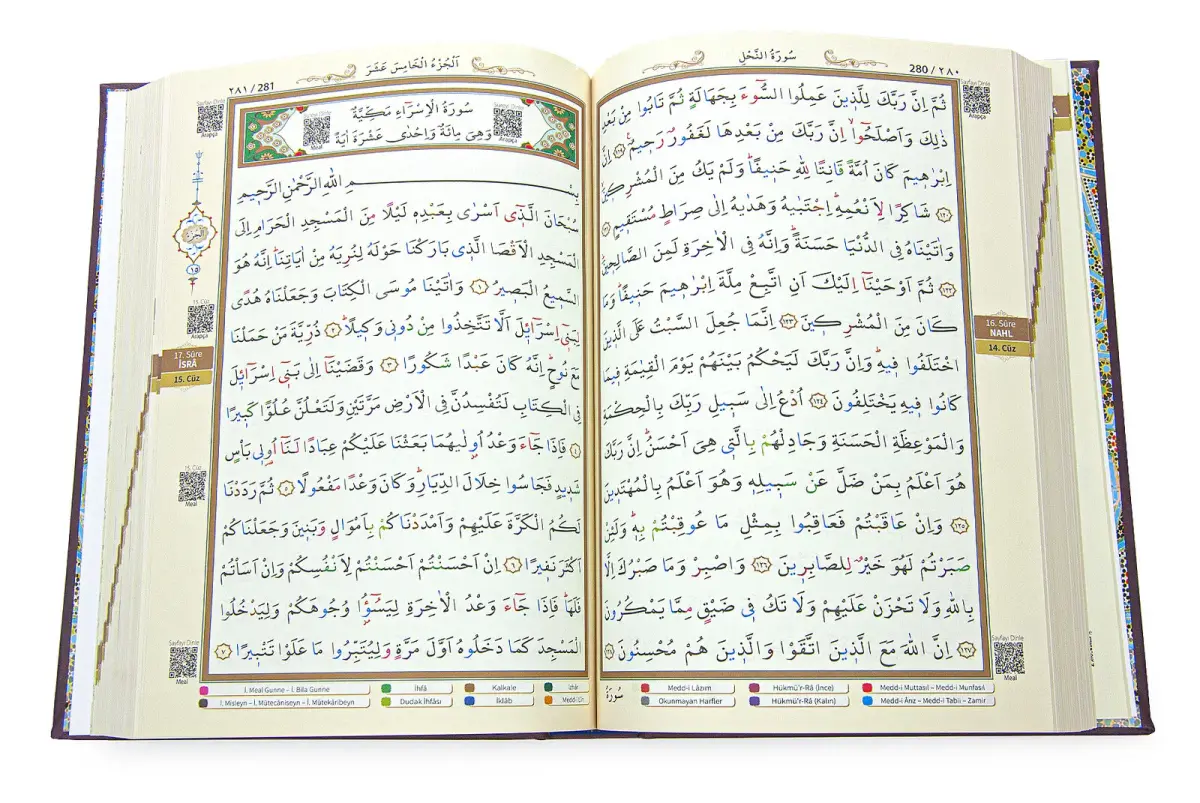 سُورَةُ النَّحْلِ
280 / ٢٨٠
ثُمَّ اِنَّ رَبَّكَ لِلَّذ۪ينَ عَمِلُوا السُّٓوءَ بِجَهَالَةٍ ثُمَّ تَابُوا مِنْ بَعْدِ
ذٰلِكَ وَاَصْلَحُٓوا اِنَّ رَبَّكَ مِنْ بَعْدِهَا لَغَفُورٌ رَح۪يمٌ ﴿١١٩﴾ اِنَّ
اِبْرٰه۪يمَ كَانَ اُمَّةً قَانِتًا لِلّٰهِ حَن۪يفًا وَلَمْ يَكُ مِنَ الْمُشْرِك۪ينَ
﴿١٢٠﴾ شَاكِرًا لِاَنْعُمِه۪ اِجْتَبٰيهُ وَهَدٰيهُ اِلٰى صِرَاطٍ مُسْتَق۪يمٍ ﴿١٢١﴾
وَاٰتَيْنَاهُ فِي الدُّنْيَا حَسَنَةً وَاِنَّهُ فِي الْاٰخِرَةِ لَمِنَ الصَّالِح۪ينَ
﴿١٢٢﴾ ثُمَّ اَوْحَيْنَٓا اِلَيْكَ اَنِ اتَّبِعْ مِلَّةَ اِبْرٰه۪يمَ حَن۪يفًا وَمَا
كَانَ مِنَ الْمُشْرِك۪ينَ ﴿١٢٣﴾ اِنَّمَا جُعِلَ السَّبْتُ عَلَى الَّذ۪ينَ
اخْتَلَفُوا ف۪يهِ وَاِنَّ رَبَّكَ لَيَحْكُمُ بَيْنَهُمْ يَوْمَ الْقِيٰمَةِ ف۪يمَا
كَانُوا ف۪يهِ يَخْتَلِفُونَ ﴿١٢٤﴾ اُدْعُ اِلٰى سَب۪يلِ رَبِّكَ بِالْحِكْمَةِ
وَالْمَوْعِظَةِ الْحَسَنَةِ وَجَادِلْهُمْ بِالَّت۪ي هِيَ اَحْسَنُ اِنَّ رَبَّكَ
هُوَ اَعْلَمُ بِمَنْ ضَلَّ عَنْ سَب۪يلِه۪ وَهُوَ اَعْلَمُ بِالْمُهْتَد۪ينَ
﴿١٢٥﴾ وَاِنْ عَاقَبْتُمْ فَعَاقِبُوا بِمِثْلِ مَا عُوقِبْتُمْ بِه۪ وَلَئِنْ
صَبَرْتُمْ لَهُوَ خَيْرٌ لِلصَّابِر۪ينَ ﴿١٢٦﴾ وَاصْبِرْ وَمَا صَبْرُكَ اِلَّا
بِاللّٰهِ وَلَا تَحْزَنْ عَلَيْهِمْ وَلَا تَكُ ف۪ي ضَيْقٍ مِمَّا يَمْكُرُونَ
﴿١٢٧﴾ اِنَّ اللّٰهَ مَعَ الَّذ۪ينَ اتَّقَوْا وَالَّذ۪ينَ هُمْ مُحْسِنُونَ ﴿١٢٨﴾
Sayfayı Dinle
Arapça
16. Sûre
NAHL
14. Cüz
Sayfayı Dinle
Meal
Medd-i Lâzım
Hükmü'r-Râ (İnce)
Medd-i Muttasıl – Medd-i Munfasıl
Okunmayan Harfler
Hükmü'r-Râ (Kalın)
Medd-i Ârız – Medd-i Tabii – Zamir
سُورَةُ
اَلْجُزْءُ الْخَامِسَ عَشَرَ
٢٨١ / 281
سُورَةُ الْاِسْرَٓاءِ مَكِّيَّةٌ
وَهِيَ مِائَةٌ وَاِحْدٰى عَشْرَةَ اٰيَةً
Meal
Arapça
بِسْمِ اللّٰهِ الرَّحْمٰنِ الرَّح۪يمِ
سُبْحَانَ الَّذ۪ٓي اَسْرٰى بِعَبْدِه۪ لَيْلًا مِنَ الْمَسْجِدِ الْحَرَامِ اِلَى
الْمَسْجِدِ الْاَقْصَا الَّذ۪ي بَارَكْنَا حَوْلَهُ لِنُرِيَهُ مِنْ اٰيَاتِنَا اِنَّهُ هُوَ
السَّم۪يعُ الْبَص۪يرُ ﴿١﴾ وَاٰتَيْنَا مُوسَى الْكِتَابَ وَجَعَلْنَاهُ هُدًى
لِبَن۪ٓي اِسْرَٓائ۪لَ اَلَّا تَتَّخِذُوا مِنْ دُون۪ي وَك۪يلًا ﴿٢﴾ ذُرِّيَّةَ مَنْ حَمَلْنَا
مَعَ نُوحٍ اِنَّهُ كَانَ عَبْدًا شَكُورًا ﴿٣﴾ وَقَضَيْنَٓا اِلٰى بَن۪ٓي اِسْرَٓائ۪لَ
فِي الْكِتَابِ لَتُفْسِدُنَّ فِي الْاَرْضِ مَرَّتَيْنِ وَلَتَعْلُنَّ عُلُوًّا كَب۪يرًا
﴿٤﴾ فَاِذَا جَٓاءَ وَعْدُ اُو۫لٰيهُمَا بَعَثْنَا عَلَيْكُمْ عِبَادًا لَنَٓا اُو۬ل۪ي بَأْسٍ
شَد۪يدٍ فَجَاسُوا خِلَالَ الدِّيَارِ وَكَانَ وَعْدًا مَفْعُولًا ﴿٥﴾ ثُمَّ رَدَدْنَا
لَكُمُ الْكَرَّةَ عَلَيْهِمْ وَاَمْدَدْنَاكُمْ بِاَمْوَالٍ وَبَن۪ينَ وَجَعَلْنَاكُمْ
اَكْثَرَ نَف۪يرًا ﴿٦﴾ اِنْ اَحْسَنْتُمْ اَحْسَنْتُمْ لِاَنْفُسِكُمْ وَاِنْ اَسَأْتُمْ
فَلَهَا فَاِذَا جَٓاءَ وَعْدُ الْاٰخِرَةِ لِيَسُٓؤُ۫ا وُجُوهَكُمْ وَلِيَدْخُلُوا
الْمَسْجِدَ كَمَا دَخَلُوهُ اَوَّلَ مَرَّةٍ وَلِيُتَبِّرُوا مَا عَلَوْا تَتْب۪يرًا ﴿٧﴾
Sayfayı Dinle
Arapça
الجزء
١٥
15. Cüz
Arapça
17. Sûre
İSRÂ
15. Cüz
15. Cüz
Meal
Sayfayı Dinle
Meal
İ. Meal Gunne - İ. Bila Gunne
İhfâ
Kalkale
İzhâr
İ. Misleyn – İ. Mütecâniseyn – İ. Mütekâribeyn
Dudak İhfâsı
İklâb